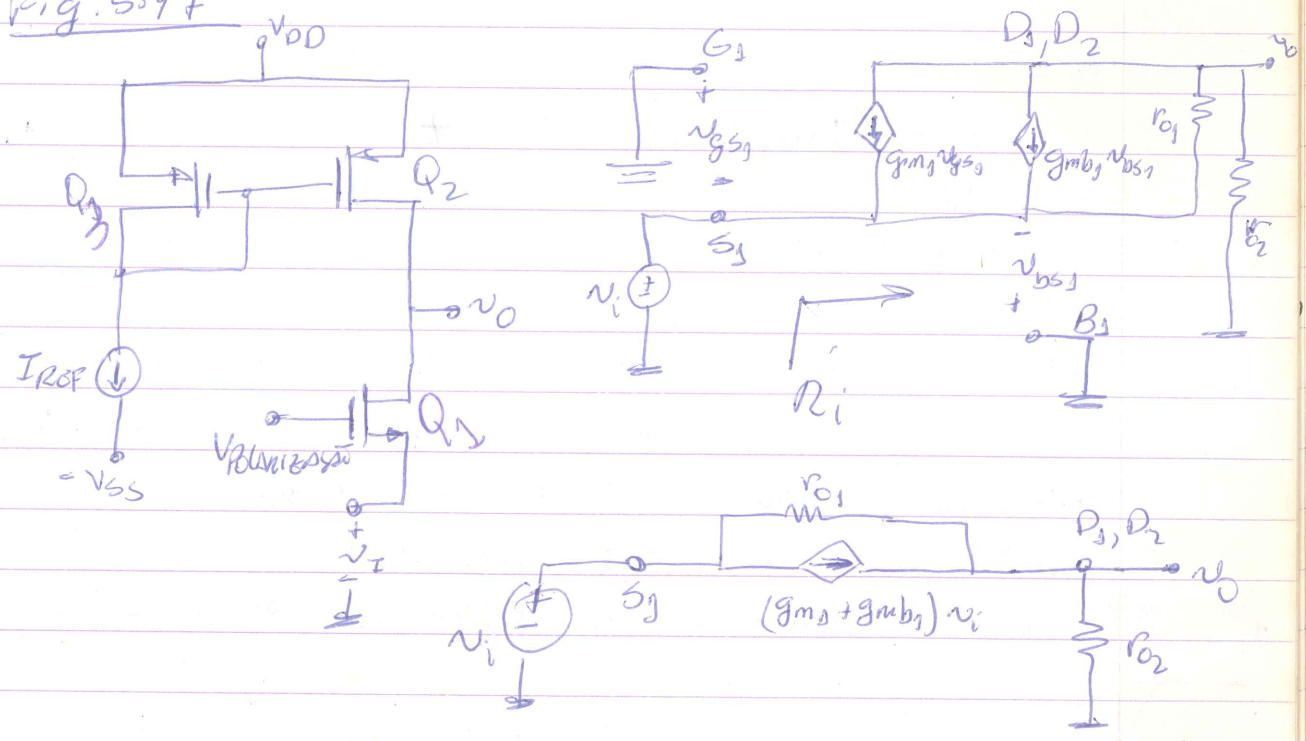 Fig. 5.47
VDD
Q3
Q2
vO
IREF
-VSS
VPOLARIZAÇÃO
Q1
+
vI
-
G1
+
vgs1
-
S1
vi
D1, D2
vo
gm1 vgs1
gmb1 vbs1
ro1
ro2
-
vbs1
+
B1
Ri
ro1
D1, D2
vo
S1
(gm1 + gmb1) vi
vi
ro2